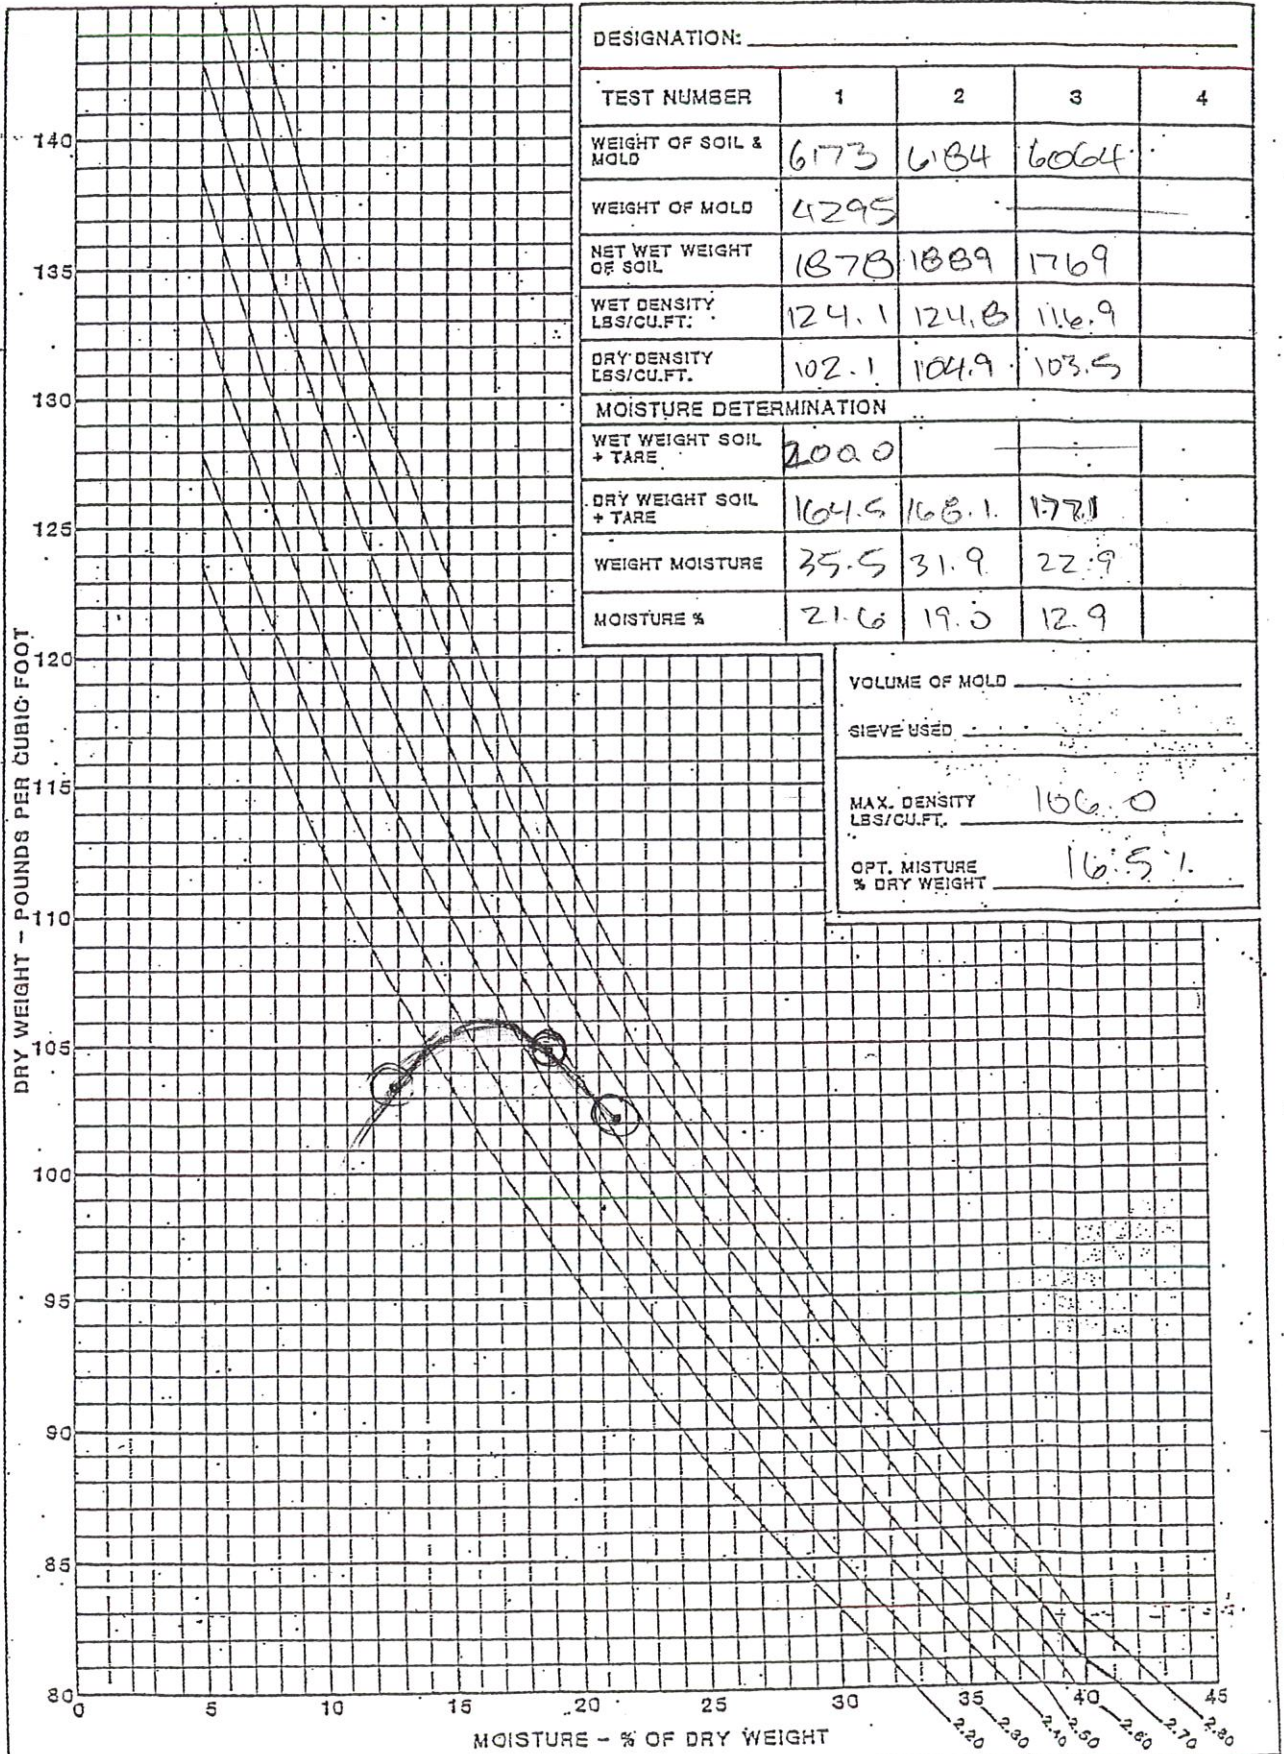 DESIGNATION:
TEST NUMBER 1 2 3 4
WEIGHT OF SOIL & MOLD 6173 6184 6064
WEIGHT OF MOLD 4295
NET WET WEIGHT OF SOIL 1878 1889 1769
WET DENSITY LBS/CU.FT. 124.1 124.8 116.9
DRY DENSITY LBS/CU.FT. 102.1 104.9 103.5
MOISTURE DETERMINATION
WET WEIGHT SOIL + TARE 200.0
DRY WEIGHT SOIL + TARE 164.5 168.1 177.1
WEIGHT MOISTURE 35.5 31.9 22.9
MOISTURE % 21.6 19.0 12.9
VOLUME OF MOLD
SIEVE USED
MAX. DENSITY LBS/CU.FT. 106.0
OPT. MISTURE % DRY WEIGHT 16.5%
DRY WEIGHT - POUNDS PER CUBIC FOOT
140
135
130
125
120
115
110
105
100
95
90
85
80
0 5 10 15 20 25 30 35 40 45
2.20 2.30 2.40 2.50 2.60 2.70 2.80
MOISTURE - % OF DRY WEIGHT